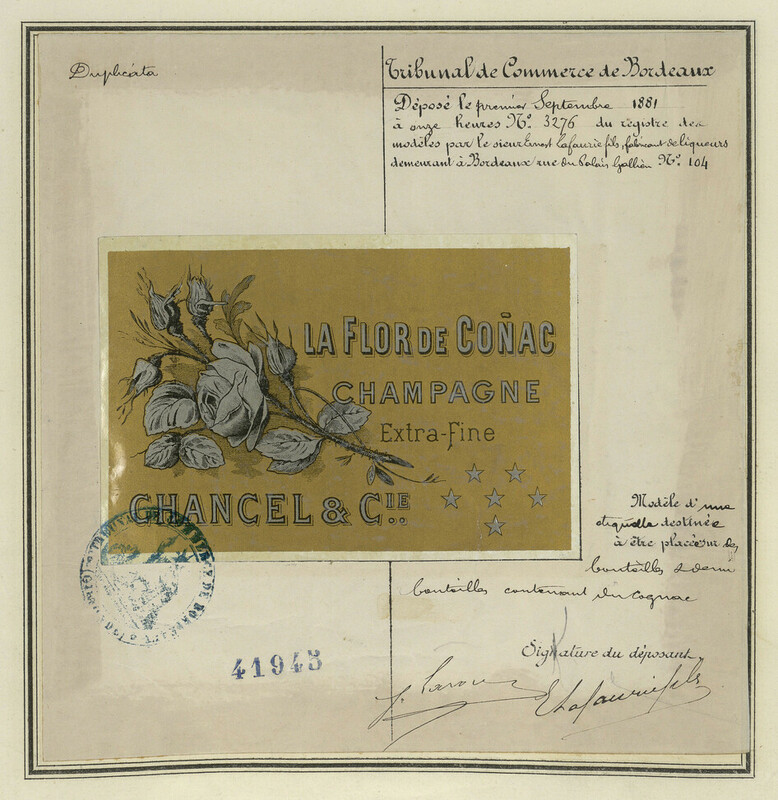 Duplicata
Tribunal de Commerce de Bordeaux
Déposé le premier Septembre 1881
à onze heures No. 3276 du registre des
modèles par le sieur Ernest Lafaurie fils, fabricant de liqueurs
demeurant à Bordeaux rue du Palais Gallien No. 104
LA FLOR DE COÑAC
CHAMPAGNE
Extra-Fine
CHANCEL & CIE
Modèle d'une
étiquette destinée
à être placée sur des
bouteilles & demi
bouteilles contenant du Cognac
41943
Signature du déposant
E Lafaurie fils